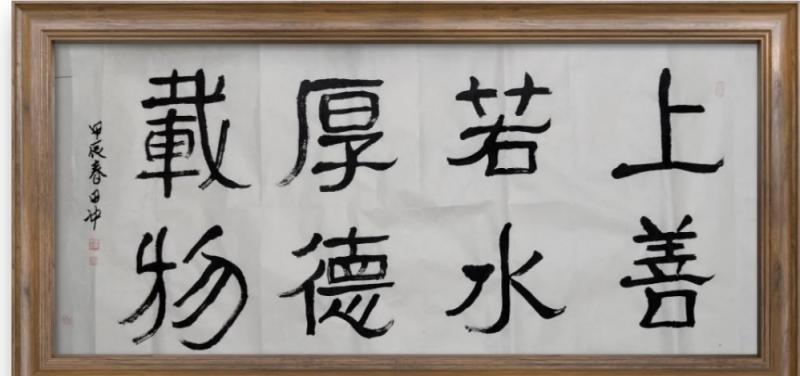 上善
若水
厚德
載物
甲辰春田冲